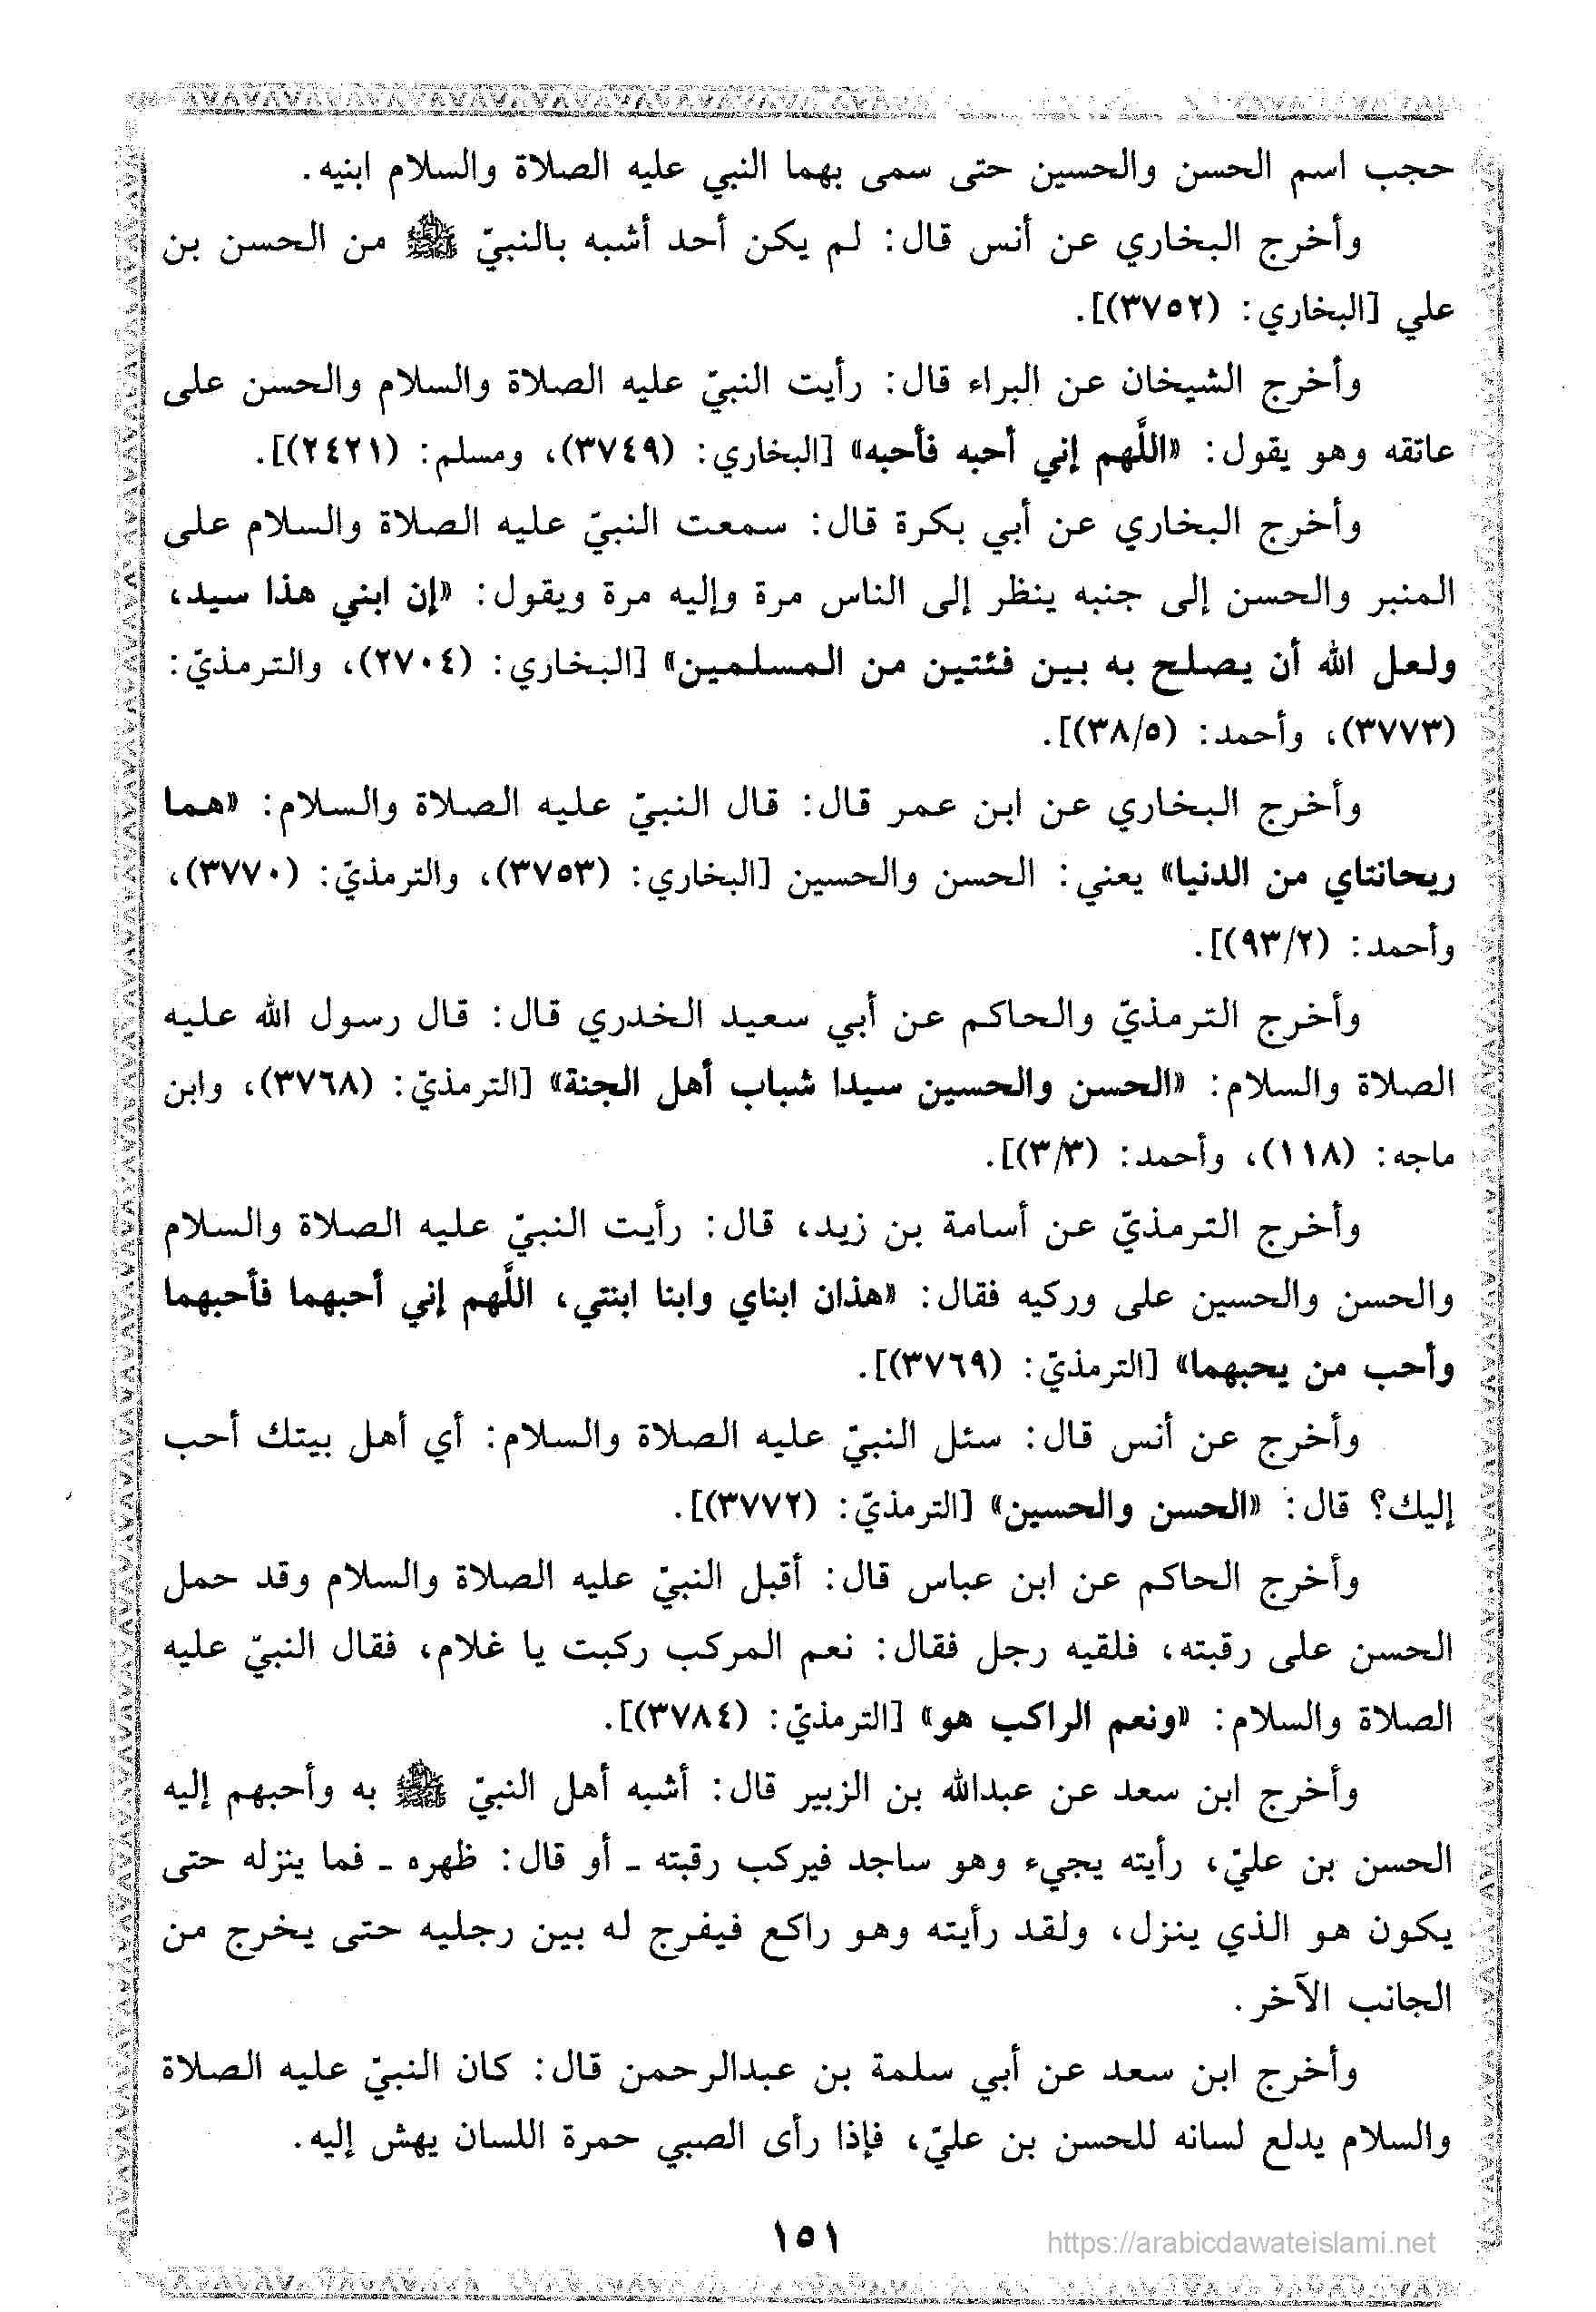 حجب اسم الحسن والحسين حتى سمى بهما النبي عليه الصلاة والسلام ابنيه.
وأخرج البخاري عن أنس قال: لم يكن أحد أشبه بالنبيّ ﷺ من الحسن بن
علي [البخاري: (٣٧٥٢)].
وأخرج الشيخان عن البراء قال: رأيت النبيّ عليه الصلاة والسلام والحسن على
عاتقه وهو يقول: «اللَّهم إني أحبه فأحبه» [البخاري: (٣٧٤٩)، ومسلم: (٢٤٢١)].
وأخرج البخاري عن أبي بكرة قال: سمعت النبيّ عليه الصلاة والسلام على
المنبر والحسن إلى جنبه ينظر إلى الناس مرة وإليه مرة ويقول: «إن ابني هذا سيد،
ولعل الله أن يصلح به بين فئتين من المسلمين» [البخاري: (٢٧٠٤)، والترمذيّ:
(٣٧٧٣)، وأحمد: (٣٨/٥)].
وأخرج البخاري عن ابن عمر قال: قال النبيّ عليه الصلاة والسلام: «هما
ريحانتاي من الدنيا» يعني: الحسن والحسين [البخاري: (٣٧٥٣)، والترمذيّ: (٣٧٧٠)،
وأحمد: (٩٣/٢)].
وأخرج الترمذيّ والحاكم عن أبي سعيد الخدري قال: قال رسول الله عليه
الصلاة والسلام: «الحسن والحسين سيدا شباب أهل الجنة» [الترمذيّ: (٣٧٦٨)، وابن
ماجه: (١١٨)، وأحمد: (٣/٣)].
وأخرج الترمذيّ عن أسامة بن زيد، قال: رأيت النبيّ عليه الصلاة والسلام
والحسن والحسين على وركيه فقال: «هذان ابناي وابنا ابنتي، اللَّهم إني أحبهما فأحبهما
وأحب من يحبهما» [الترمذيّ: (٣٧٦٩)].
وأخرج عن أنس قال: سئل النبيّ عليه الصلاة والسلام: أي أهل بيتك أحب
إليك؟ قال: «الحسن والحسين» [الترمذيّ: (٣٧٧٢)].
وأخرج الحاكم عن ابن عباس قال: أقبل النبيّ عليه الصلاة والسلام وقد حمل
الحسن على رقبته، فلقيه رجل فقال: نعم المركب ركبت يا غلام، فقال النبيّ عليه
الصلاة والسلام: «ونعم الراكب هو» [الترمذيّ: (٣٧٨٤)].
وأخرج ابن سعد عن عبدالله بن الزبير قال: أشبه أهل النبيّ ﷺ به وأحبهم إليه
الحسن بن عليّ، رأيته يجيء وهو ساجد فيركب رقبته ـ أو قال: ظهره ـ فما ينزله حتى
يكون هو الذي ينزل، ولقد رأيته وهو راكع فيفرج له بين رجليه حتى يخرج من
الجانب الآخر.
وأخرج ابن سعد عن أبي سلمة بن عبدالرحمن قال: كان النبيّ عليه الصلاة
والسلام يدلع لسانه للحسن بن عليّ، فإذا رأى الصبي حمرة اللسان يهش إليه.
١٥١
https://arabicdawateislami.net